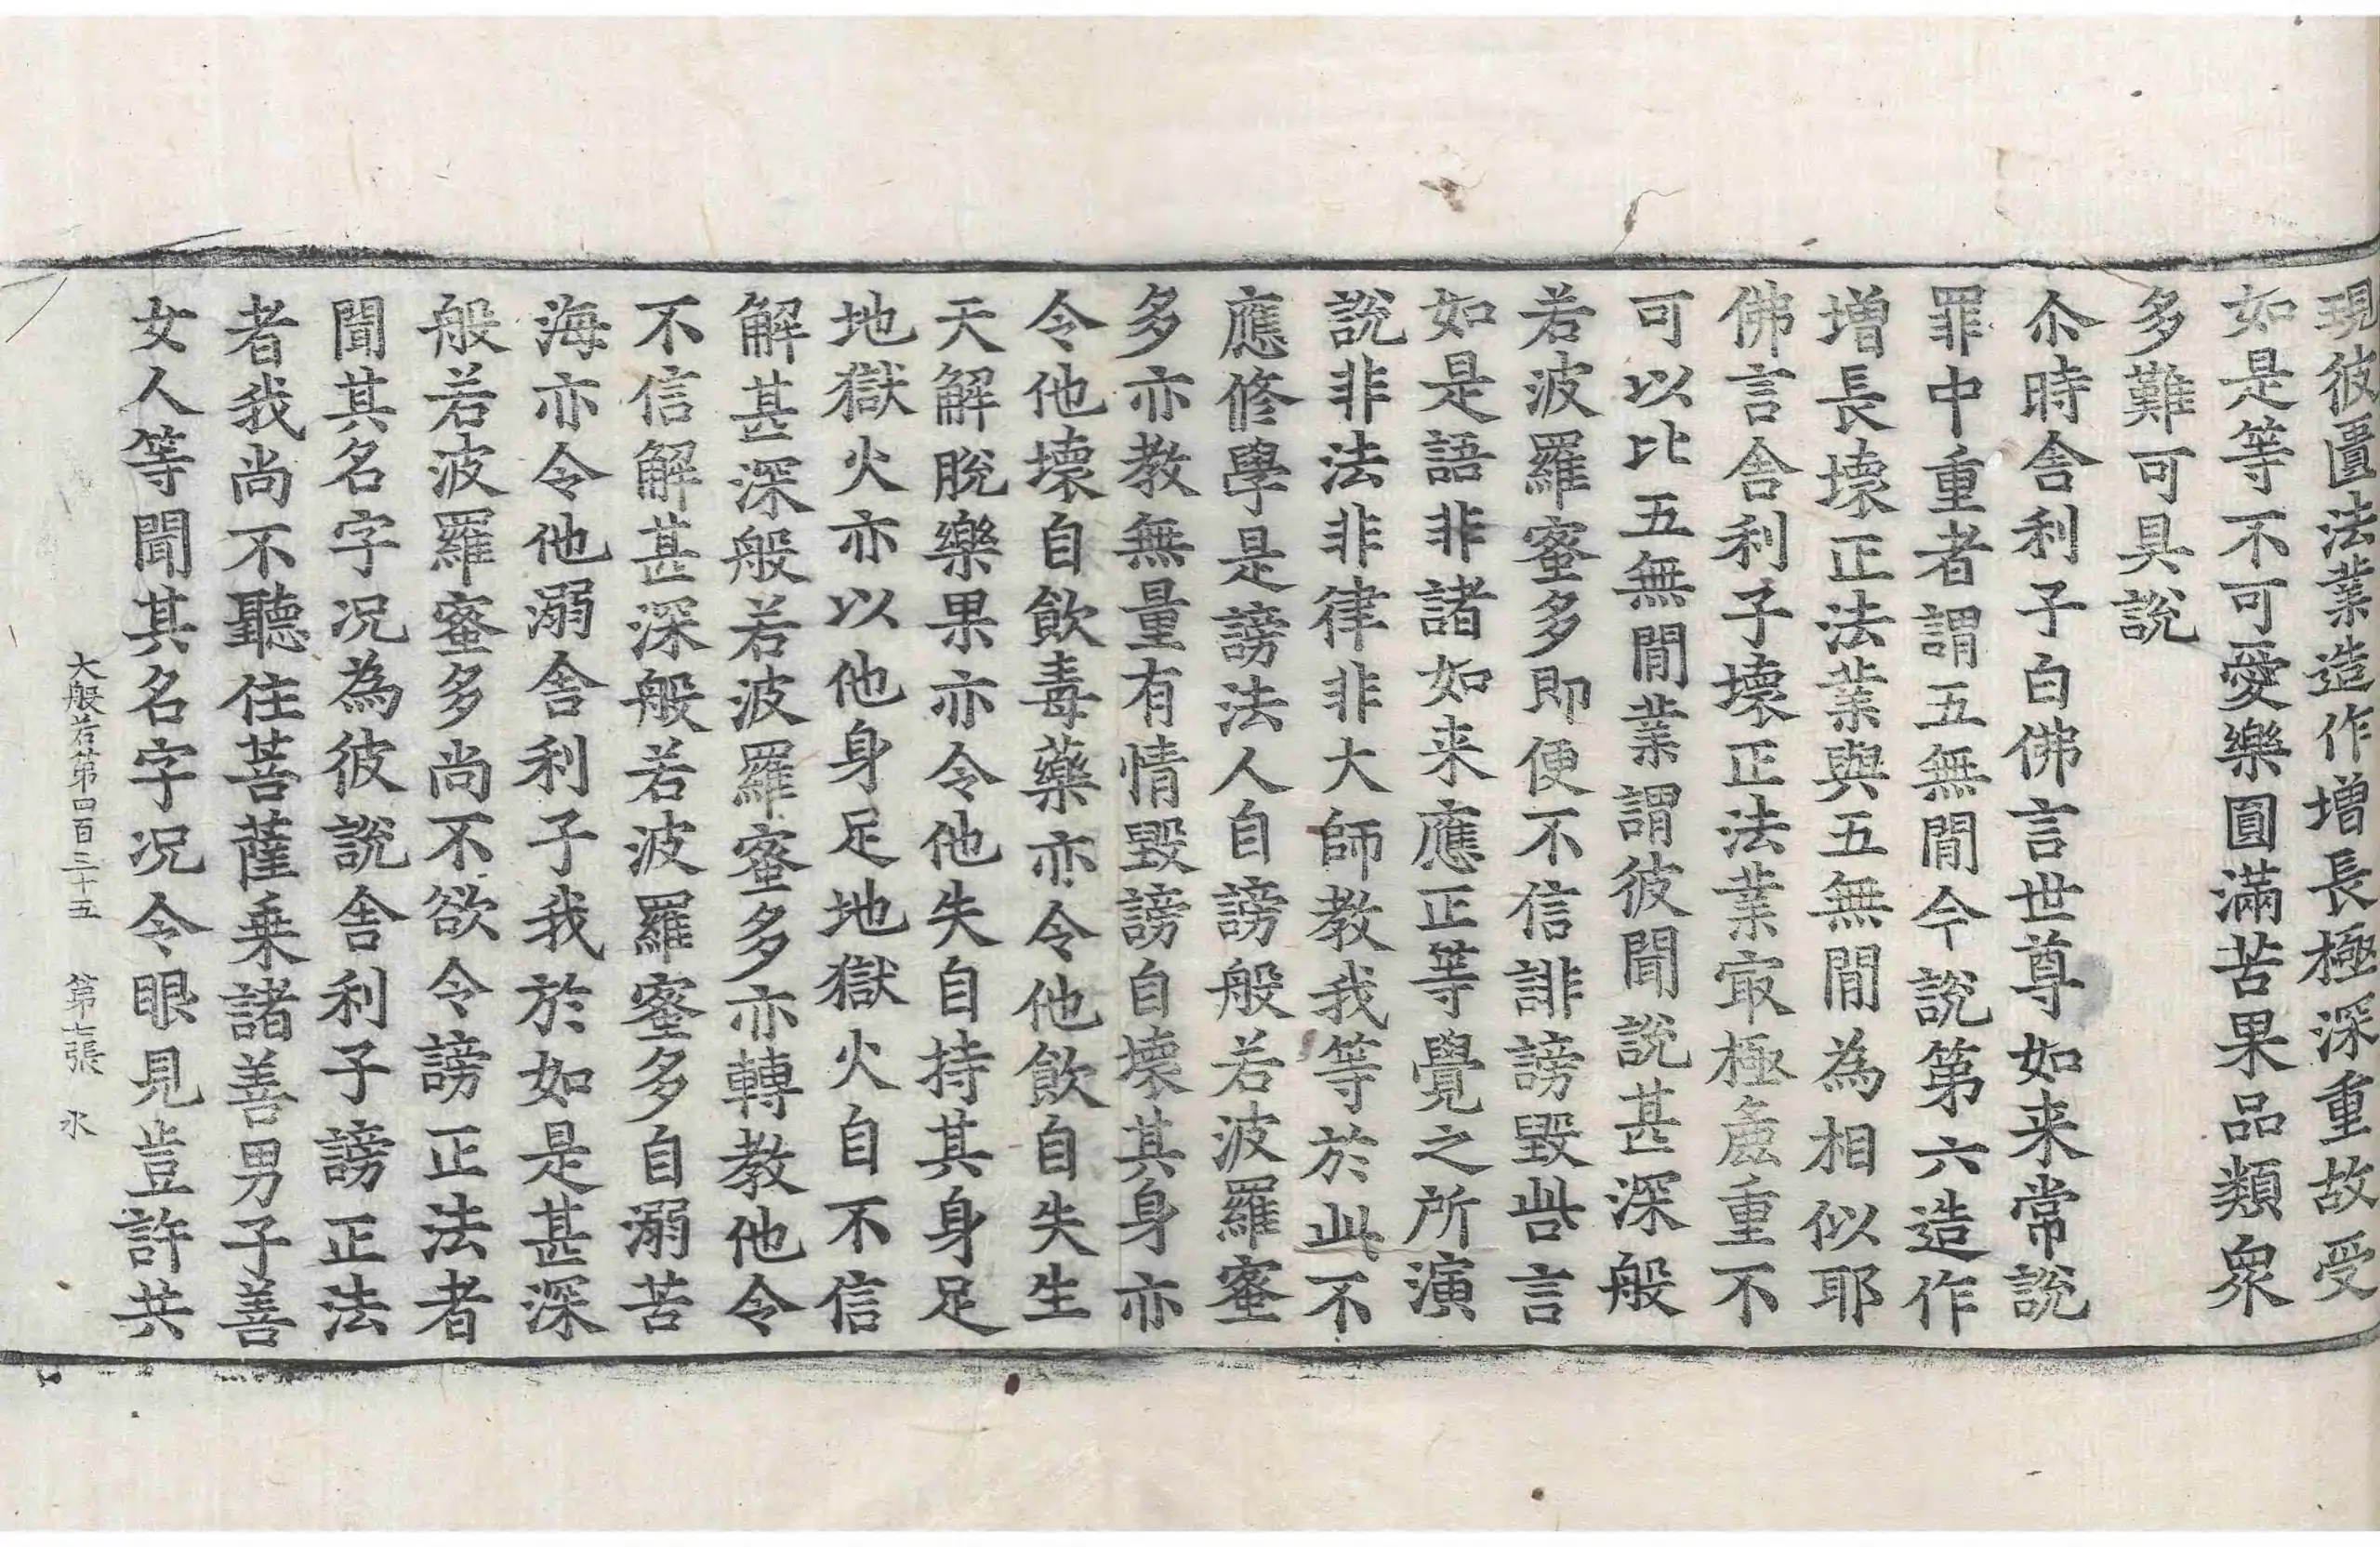 現彼匱法業造作增長極深重故受
如是等不可愛樂圓滿苦果品類衆
多難可具說
尒時舍利子白佛言世尊如来常說
罪中重者謂五無閒今說第六造作
增長壞正法業與五無閒為相似耶
佛言舍利子壞正法業㝡極麁重不
可以比五無閒業謂彼聞說甚深般
若波羅蜜多即便不信誹謗毀呰言
如是語非諸如来應正等覺之所演
說非法非律非大師教我等於此不
應修學是謗法人自謗般若波羅蜜
多亦教無量有情毀謗自壞其身亦
令他壞自飲毒藥亦令他飲自失生
天解脫樂果亦令他失自持其身足
地獄火亦以他身足地獄火自不信
解甚深般若波羅蜜多亦轉教他令
不信解甚深般若波羅蜜多自溺苦
海亦令他溺舍利子我於如是甚深
般若波羅蜜多尚不欲令謗正法者
聞其名字况為彼說舍利子謗正法
者我尚不聽住菩薩乗諸善男子善
女人等聞其名字况令眼見豈許共
大般若第四百三十五　第七張　氷